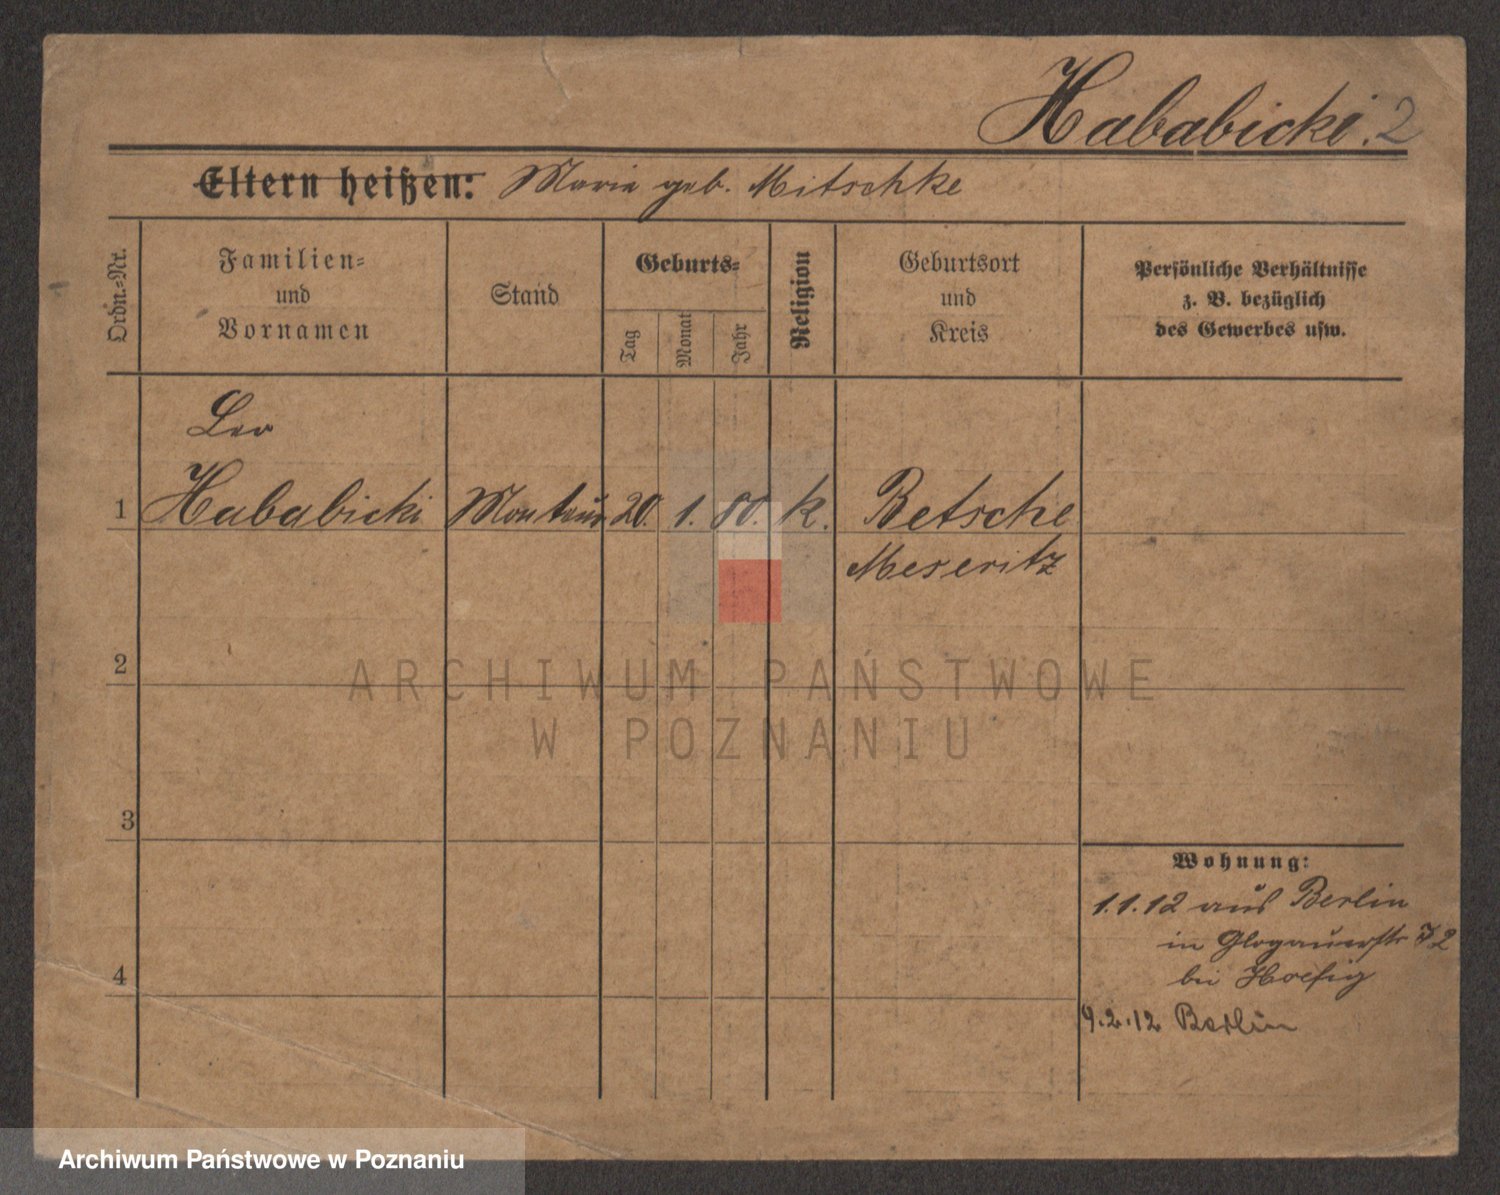 Hababicki. 2
Eltern heißen: Marie geb. Mitschke
Ordn.-Nr.
Familien-
und
Vornamen
Stand
Geburts-
Tag
Monat
Jahr
Religion
Geburtsort
und
Kreis
Persönliche Verhältnisse
z. B. bezüglich
des Gewerbes usw.
Leo
1 Hababicki Monteur 20. 1. 80. k. Betsche
Meseritz
2
ARCHIWUM PAŃSTWOWE
W POZNANIU
3
Wohnung:
1.1.12 aus Berlin
in Glogauerstr 72
4
bei Hoefig
9.2.12 Berlin
Archiwum Państwowe w Poznaniu